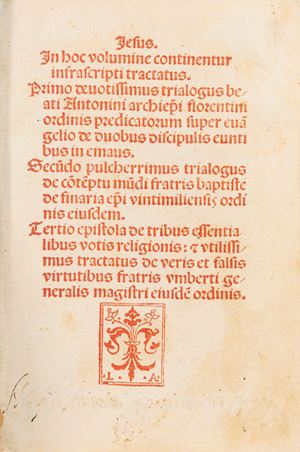 Jesus.
In hoc volumine continentur
infrascripti tractatus.
Primo deuotissimus trialogus be
ati Antonini archiep̄i florentini
ordinis predicatorum super euā
gelio de duobus discipulis eunti
bus in emaus.
Secūdo pulcherrimus trialogus
de cōtēptu mūdi fratris baptiste
de finaria ep̄i vintimiliensis ordi
nis eiusdem.
Tertio epistola de tribus essentia
libus votis religionis: ⁊ vtilissi
mus tractatus de veris et falsis
virtutibus fratris vmberti ge
neralis magistri eiusdē ordinis.
L A